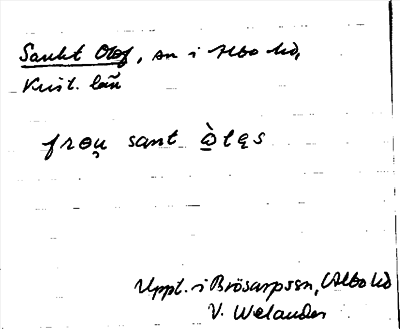 Sankt Olof, sn i Albo hd,
Krist. län
frǫu̯ sant ò̲lęs
Uppt. i Brösarpssn, Albo hd
V. Welander